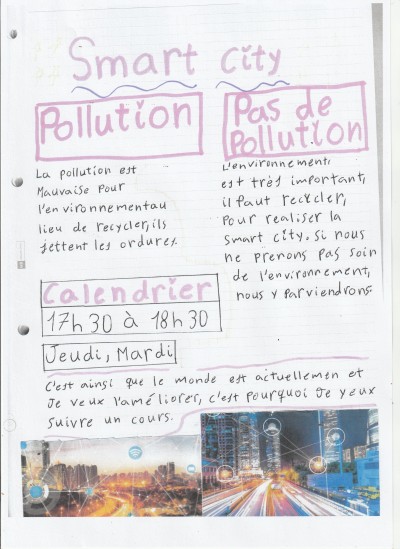 Smart City
Pollution
La pollution est
Mauvaise pour
l'environnement au
lieu de recycler, ils
jettent les ordures.
Pas de
Pollution
L'environnement,
est très important,
il faut recycler,
Pour realiser la
Smart city. Si nous
ne prenons pas soin
de l'environnement,
nous y parviendrons.
Calendrier
17h30 à 18h30
Jeudi, Mardi
C'est ainsi que le monde est actuellement et
Je veux l'améliorer, c'est pourquoi Je veux
suivre un cours.